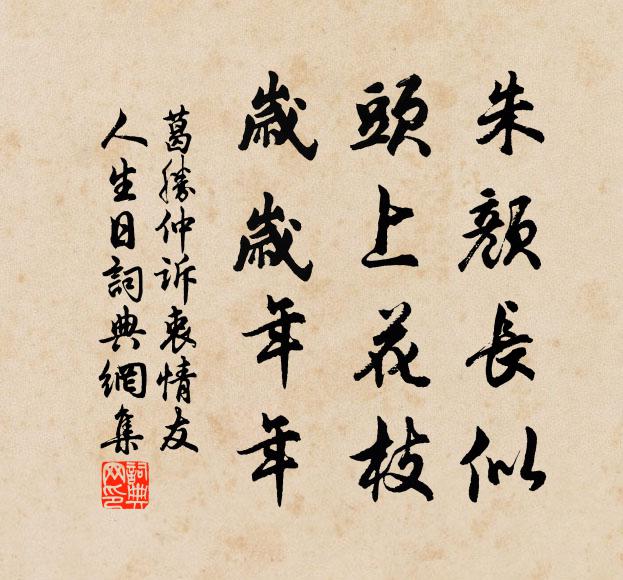 朱顏長似
頭上花枝
歲歲年年
葛勝仲訴衷情友
人生日詞典網集
詞典
网印